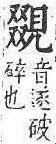 音逐破
碎也